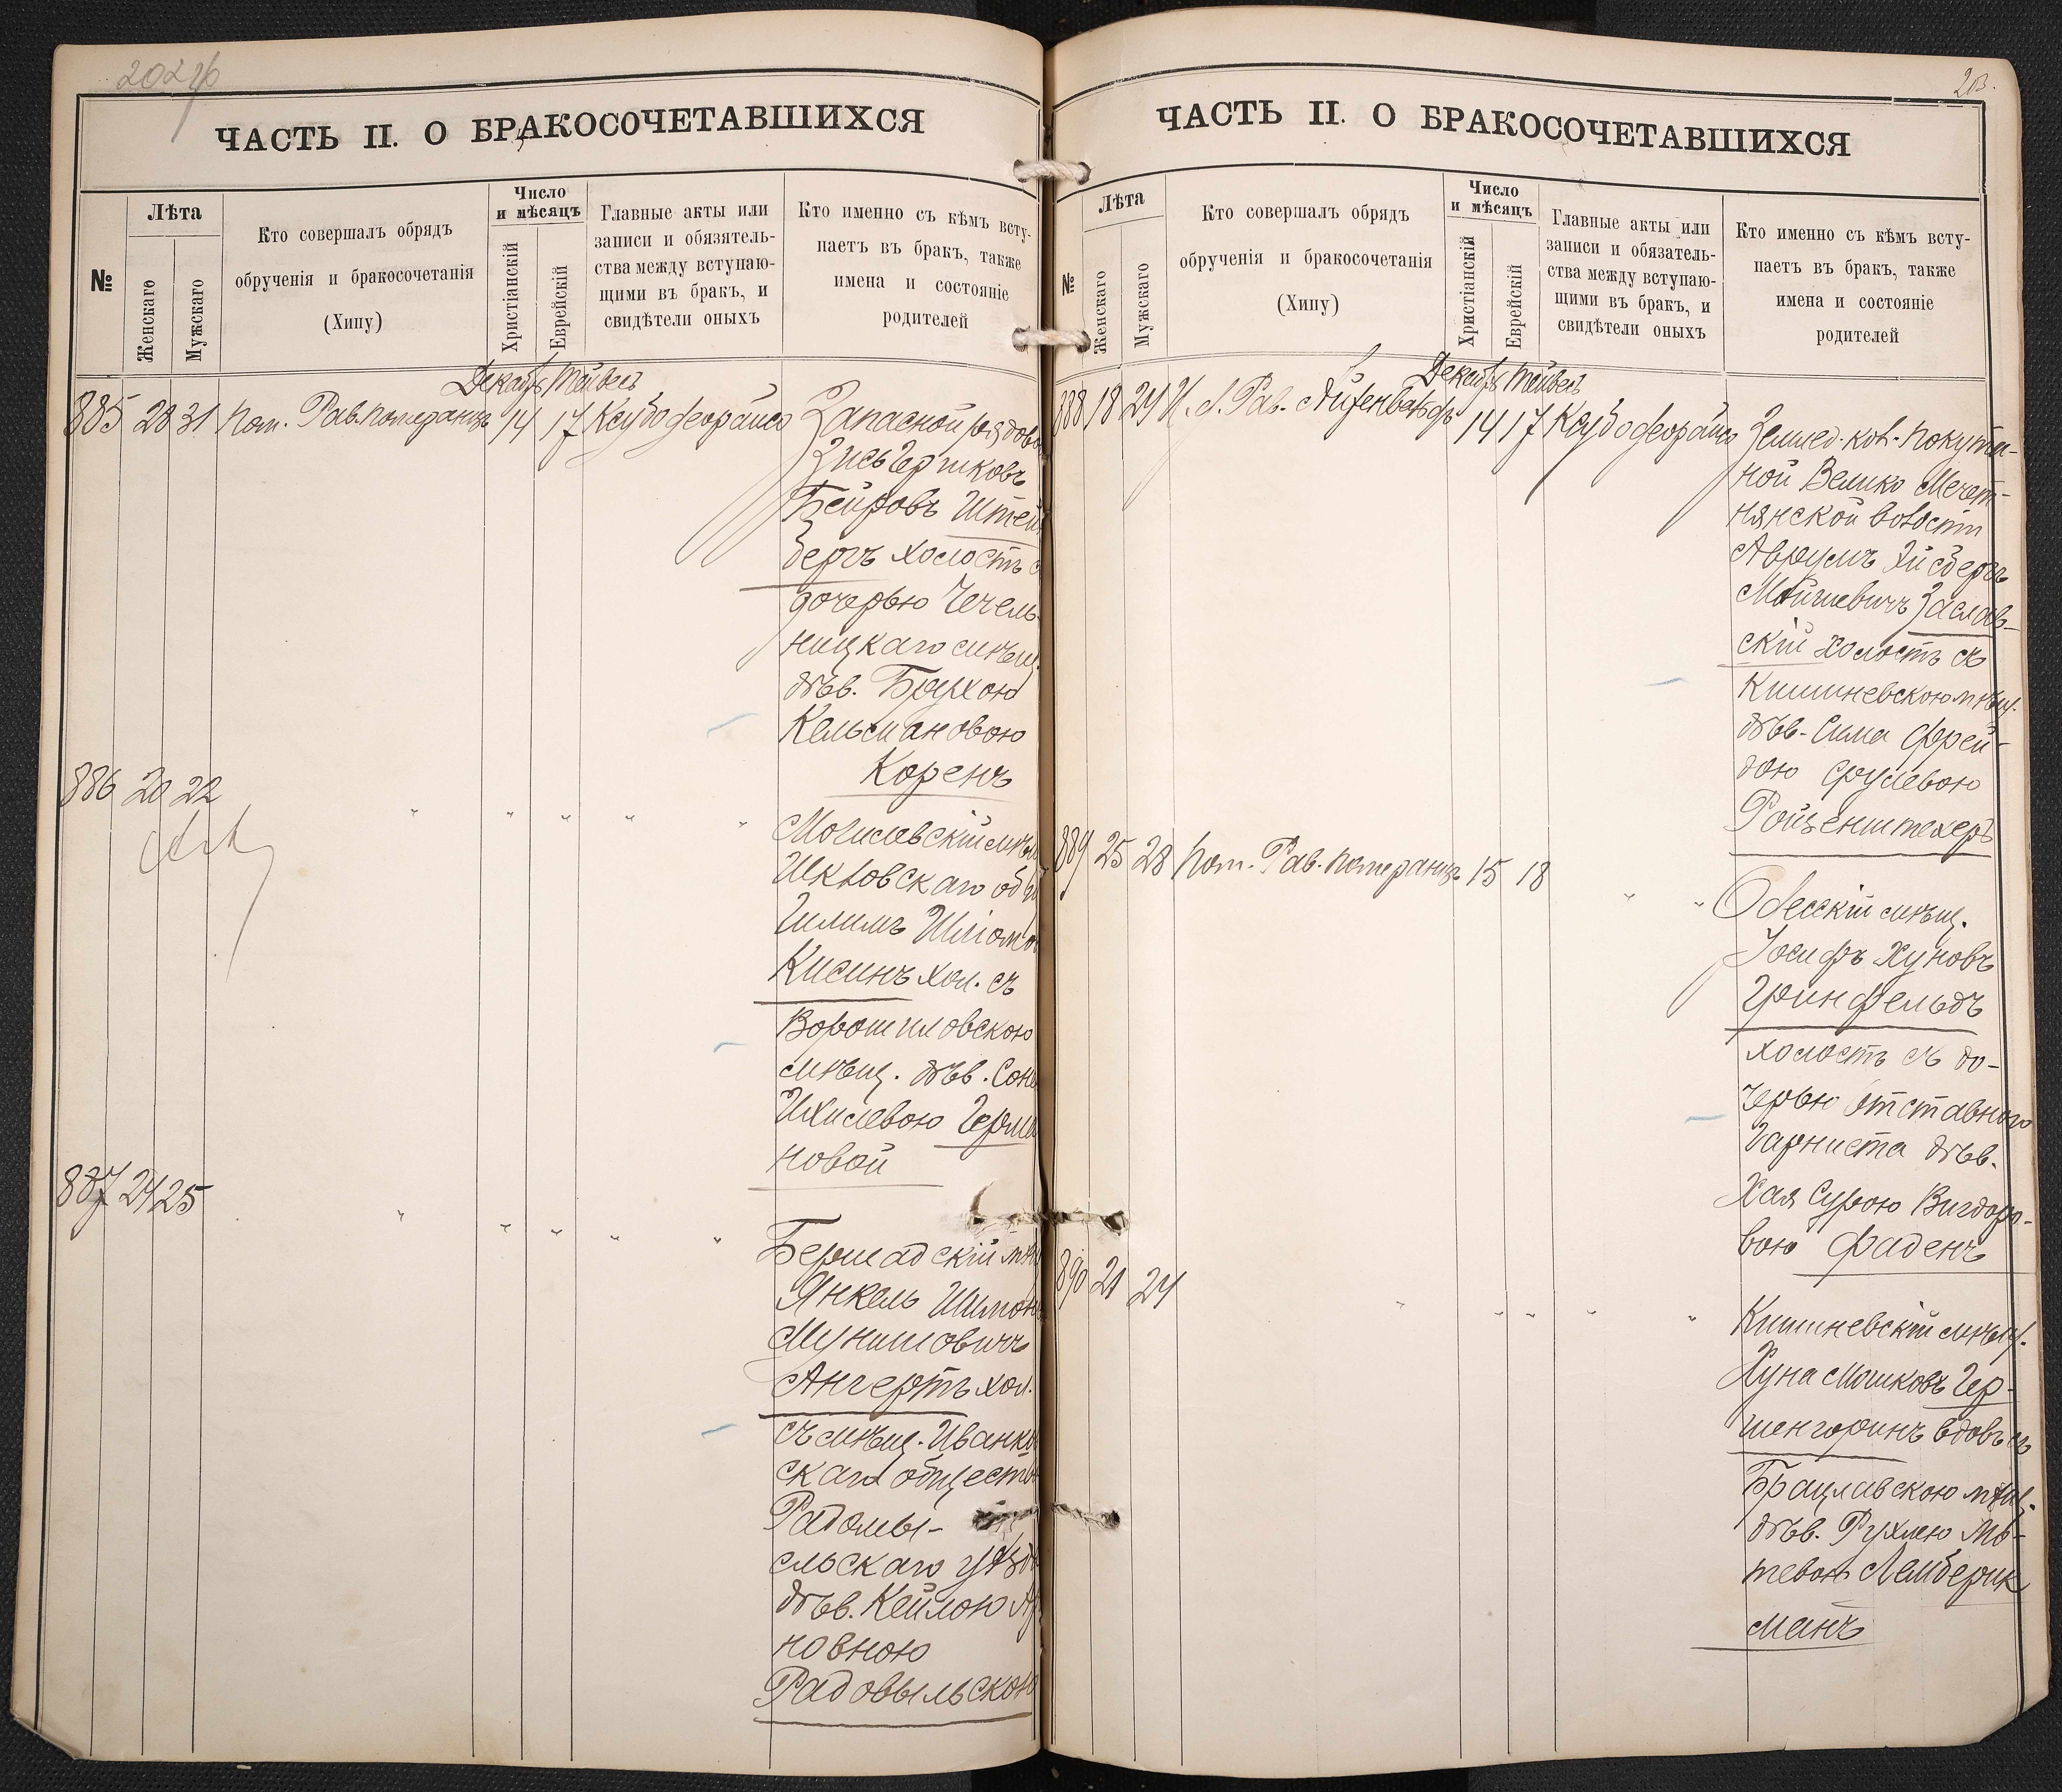 202 об
ЧАСТЬ II. О БРАКОСОЧЕТАВШИХСЯ
№
Лѣта
Женскаго
Мужскаго
Кто совершалъ обрядъ
обрученія и бракосочетанія
(Хипу)
Число
и мѣсяцъ
Христіанскій
Еврейскій
Главные акты или
записи и обязятель-
ства между вступаю-
щими въ бракъ, и
свидѣтели оныхъ
Кто именно съ кѣмъ всту-
паетъ въ бракъ, также
имена и состояніе
родителей
Декабр Тейвесъ
885 20 31 Пом. Рав. Померанцъ 14 17 Ксубо деорайсо Запасной рядово
Зись Гершковъ
Бейровъ Штейн
бергъ холостъ с
дочерью Чечель-
ницкаго мѣщ.
дѣв. Брухою
Кельмановою
Коренъ
886 20 22 " " " " "
Могилевскій мѣщ
Шкловскаго общ
Шлюмо
Кисинъ хол. съ
Ворошиловскою
мѣщ. дѣв. Соне
Ихилевою Герма
новой
887 24 25 " " " " "
Бершадскій мѣщ
Янкель Шимон
Мунишовичъ
Ангертъ хол.
съ мѣщ. Иванков
скаго обществ
Радомы-
сльскаго уѣзд
дѣв. Кейлою Ар
новною
Радовыльскою
203.
ЧАСТЬ II. О БРАКОСОЧЕТАВШИХСЯ
№
Лѣта
Женскаго
Мужскаго
Кто совершалъ обрядъ
обрученія и бракосочетанія
(Хипу)
Число
и мѣсяцъ
Христіанскій
Еврейскій
Главные акты или
записи и обязатель-
ства между вступаю-
щими въ бракъ, и
свидѣтели оныхъ
Кто именно съ кѣмъ всту-
паетъ въ бракъ, также
имена и состояніе
родителей
Декабр Тейвесъ
888 18 24 И. д. Рав. Айзенвайсфъ 14 17 Ксубо деорайсо Землед. кол. Покути-
ной Велико Мечет-
нянской волости
Аврумъ Эйсберъ
Мойшевичъ Заслав-
скій холостъ съ
Кишиневскою мѣщ.
дѣв. Сима Фрей-
дою Срулевою
Ройзенштехеръ
889 25 28 Пом. Рав. Померанцъ 15 18 " "
Одесскій мѣщ.
Іосифъ Хуновъ
Гринфельдъ
холостъ съ до-
черью отставного
Гарниста дѣв.
Хая Сурою Вигдоро-
вою Фаденъ
890 21 24 " " " " "
Кишиневскій мѣщ.
Хуна Мошковъ Гер-
шенгоринъ вдовъ съ
Брацлавскою мѣщ.
дѣв. Рухлею Мо-
тевою Лемберик
манъ